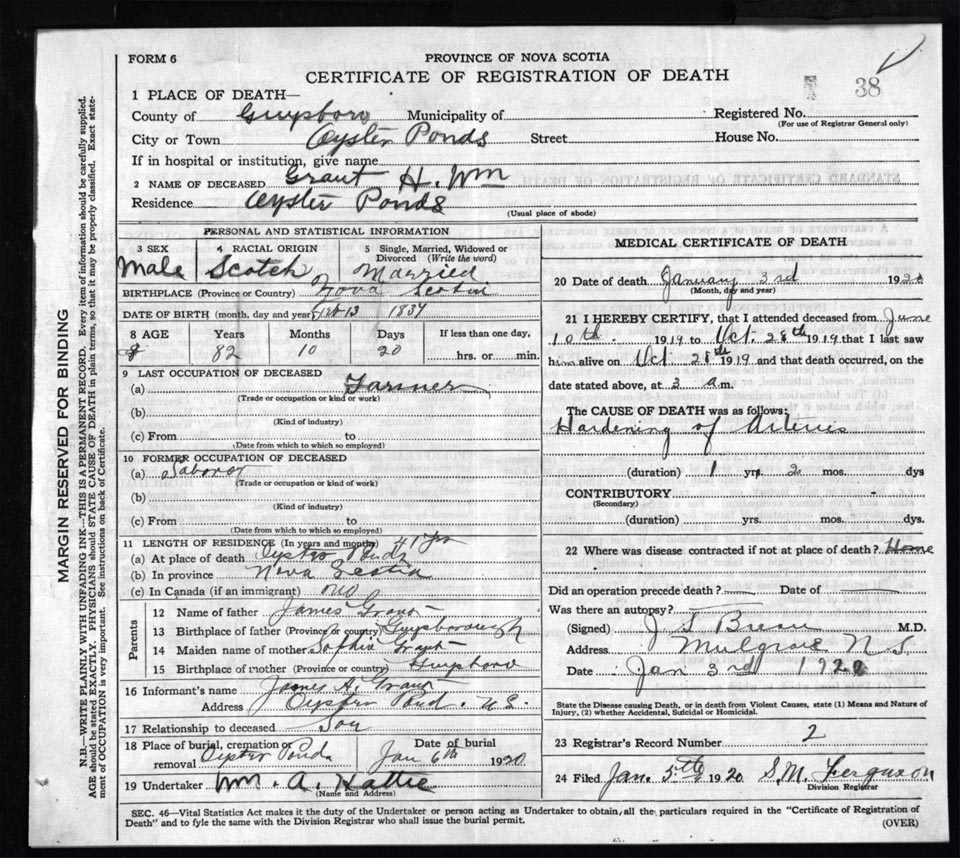 FORM 6
PROVINCE OF NOVA SCOTIA
CERTIFICATE OF REGISTRATION OF DEATH
38
1 PLACE OF DEATH—
County of Guysboro Municipality of
Registered No.
(For use of Registrar General only)
City or Town Oyster Ponds Street House No.
If in hospital or institution, give name
2 NAME OF DECEASED Grant H. Wm
Residence Oyster Ponds
(Usual place of abode)
PERSONAL AND STATISTICAL INFORMATION
3 SEX 4 RACIAL ORIGIN 5 Single, Married, Widowed or Divorced (Write the word)
Male Scotch Married
BIRTHPLACE (Province or Country) Nova Scotia
DATE OF BIRTH (month, day and year) 13 1837
8 AGE Years Months Days If less than one day,
82 10 20 hrs. or min.
9 LAST OCCUPATION OF DECEASED
(a) Farmer
(Trade or occupation or kind or work)
(b)
(Kind of industry)
(c) From to
(Date from which to which so employed)
10 FORMER OCCUPATION OF DECEASED
(a) Laboror
(Trade or occupation or kind of work)
(b)
(Kind of industry)
(c) From to
(Date from which to which so employed)
11 LENGTH OF RESIDENCE (In years and months)
(a) At place of death Oyster Ponds 41 yrs
(b) In province Nova Scotia
(c) In Canada (if an immigrant) no
Parents
12 Name of father James Grant
13 Birthplace of father (Province or country) Guysborough
14 Maiden name of mother Sophia Grant
15 Birthplace of mother (Province or country) Guysboro
16 Informant's name James A. Grant
Address Oyster Pond. N.S.
17 Relationship to deceased Son
18 Place of burial, cremation or removal Oyster Ponds
Date of burial Jan 6th 1920
19 Undertaker Wm. A. Hattie
(Name and Address)
MEDICAL CERTIFICATE OF DEATH
20 Date of death January 3rd 1920
(Month, day and year)
21 I HEREBY CERTIFY, that I attended deceased from June
10th 1919 to Oct. 28th 1919 that I last saw
him alive on Oct. 28th 1919 and that death occurred, on the
date stated above, at 3 a.m.
The CAUSE OF DEATH was as follows:
Hardening of Arteries
(duration) 1 yrs. 2 mos. dys
CONTRIBUTORY
(Secondary)
(duration) yrs. mos. dys.
22 Where was disease contracted if not at place of death? Home
Did an operation precede death? — Date of —
Was there an autopsy?
(Signed) J S M.D.
Address Mulgrave N.S.
Date Jan 3rd 1920
State the Disease causing Death, or in death from Violent Causes, state (1) Means and Nature of
Injury, (2) whether Accidental, Suicidal or Homicidal.
23 Registrar's Record Number 2
24 Filed Jan. 5th 1920 S.M. Ferguson
Division Registrar
SEC. 46—Vital Statistics Act makes it the duty of the Undertaker or person acting as Undertaker to obtain, all the particulars required in the "Certificate of Registration of
Death" and to fyle the same with the Division Registrar who shall issue the burial permit.
(OVER)
MARGIN RESERVED FOR BINDING
N.B.—WRITE PLAINLY WITH UNFADING INK—THIS IS A PERMANENT RECORD. Every item of information should be carefully supplied.
AGE should be stated EXACTLY. PHYSICIANS should STATE CAUSE OF DEATH in plain terms, so that it may be properly classified. Exact statement of OCCUPATION is very important. See instructions on back of Certificate.